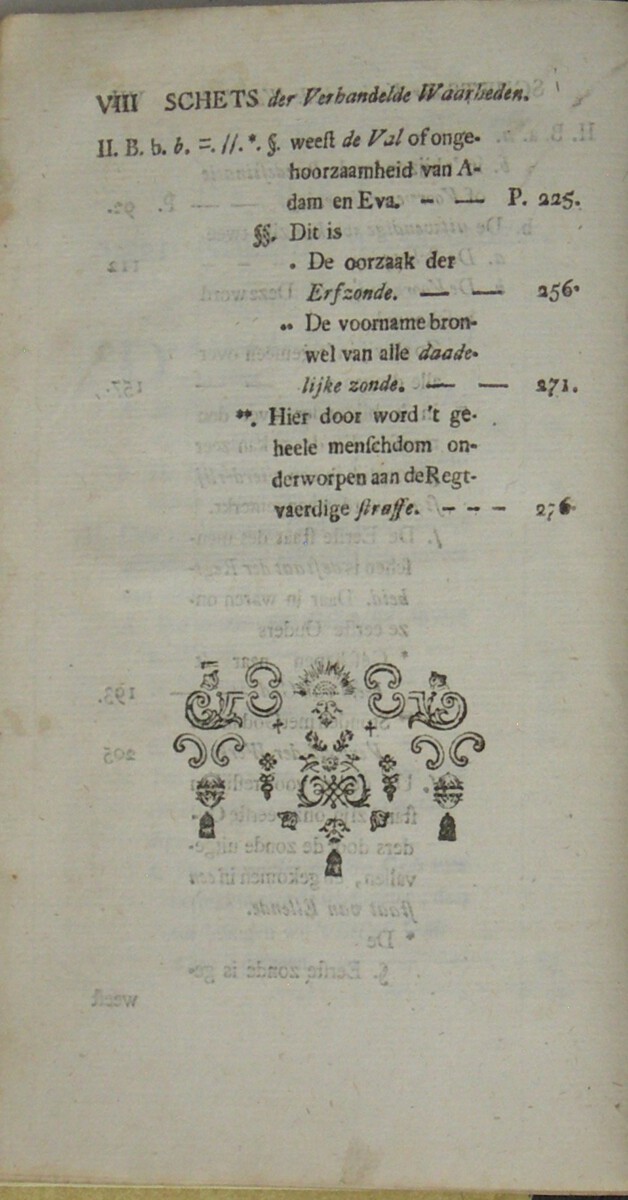 VIII SCHETS der Verhandelde Waarheden.
II. B. b. b. =. //. *. §. weeſt de Val of onge-
hoorzaamheid van A-
dam en Eva. — — P. 225.
§§. Dit is
. De oorzaak der
Erfzonde. — — 256.
.. De voorname bron-
wel van alle daade-
lijke zonde. — — 271.
**. Hier door word 't ge-
heele menſchdom on-
derworpen aan de Regt-
vaerdige ſtraffe. - - - 276